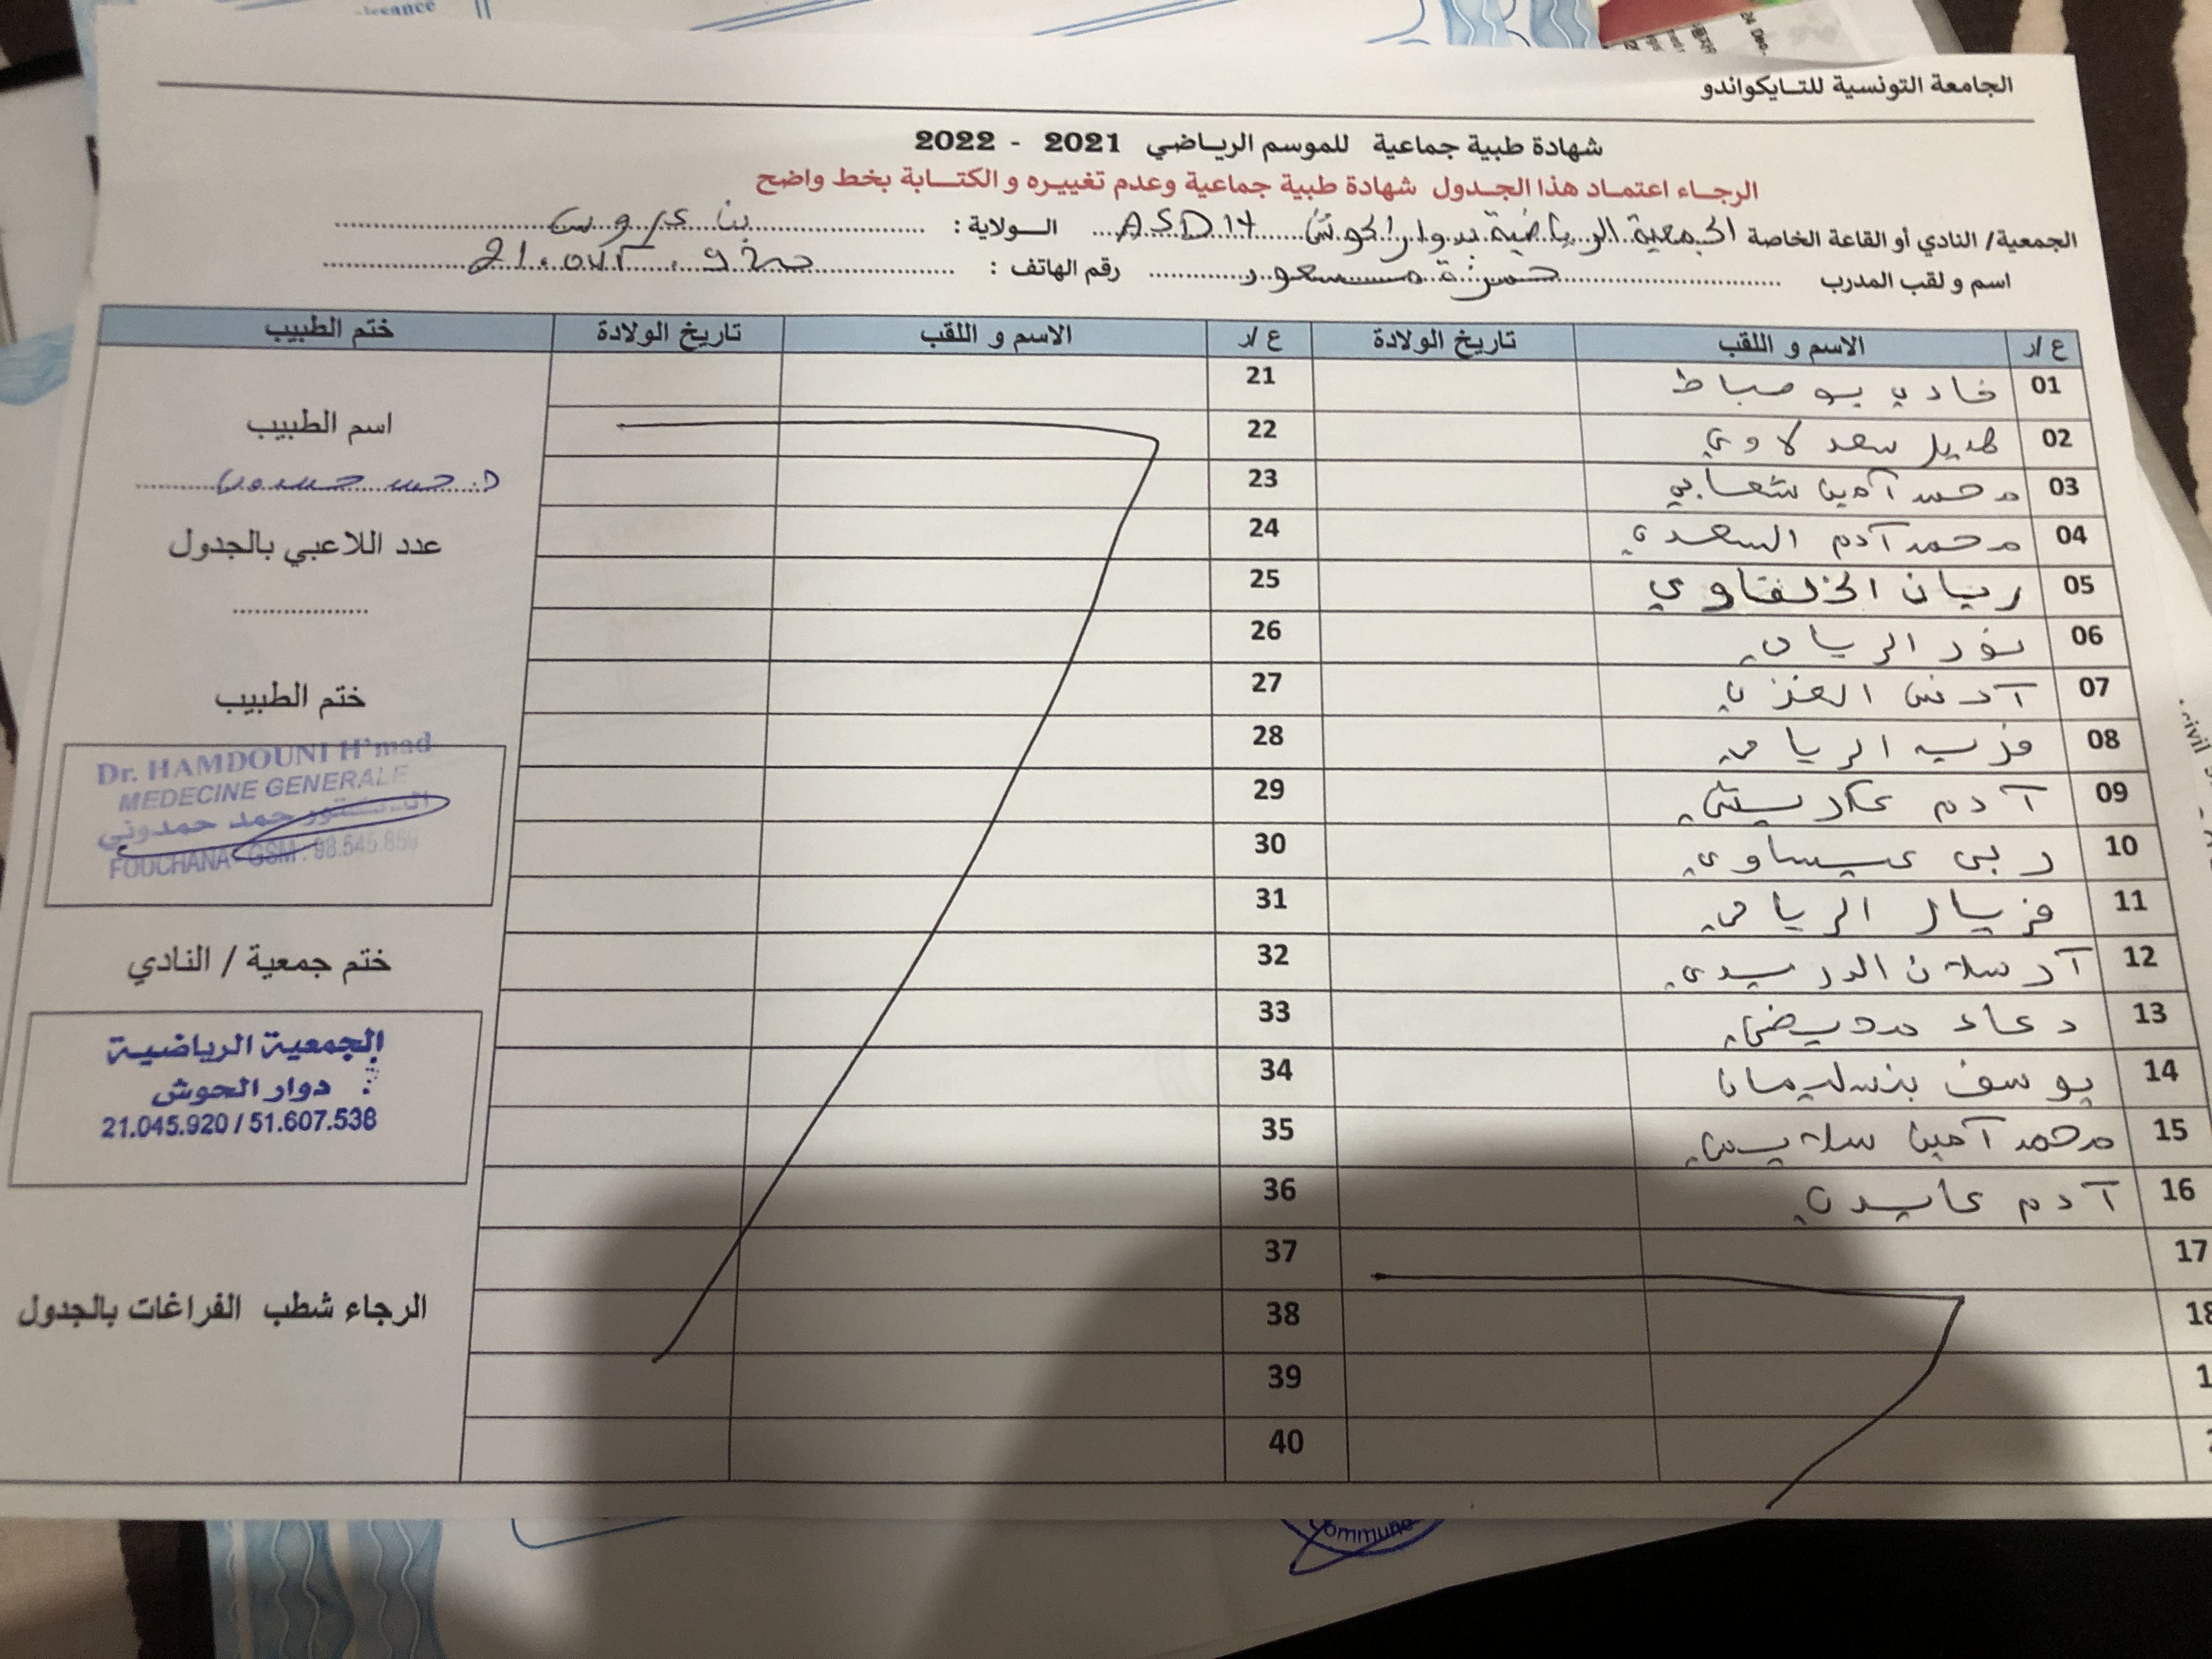 الجامعة التونسية للتايكواندو
شهادة طبية جماعية للموسم الرياضي 2021 - 2022
الرجاء اعتماد هذا الجدول شهادة طبية جماعية وعدم تغييره و الكتابة بخط واضح
الجمعية/ النادي أو القاعة الخاصة الجمعية الرياضية بدوار الحوش ASD17 الولاية: بن عروس
اسم و لقب المدرب حمزة مسعود رقم الهاتف: 21.045.920
ع/ر الاسم و اللقب تاريخ الولادة ع/ر الاسم و اللقب تاريخ الولادة ختم الطبيب
01 فادي بوصباط 21
02 هديل سعدلاوي 22
03 محمد آمين شعابي 23
04 محمد آدم السعدي 24
05 ريان الخلفاوي 25
06 نور الرياحي 26
07 27
08 الرياحي 28
09 آدم 29
10 ربى عيساوي 30
11 الرياحي 31
12 آرسلان الدريدي 32
13 دعاء 33
14 يوسف بنسليمان 34
15 محمد آمين 35
16 آدم عايدي 36
17 37
18 38
39
40
اسم الطبيب
عدد اللاعبي بالجدول
ختم الطبيب
Dr. HAMDOUNI H'mad
MEDECINE GENERALE
الدكتور حمد حمدوني
FOUCHANA - GSM : 98.545.859
ختم جمعية / النادي
الجمعية الرياضية
دوار الحوش
21.045.920 / 51.607.538
الرجاء شطب الفراغات بالجدول